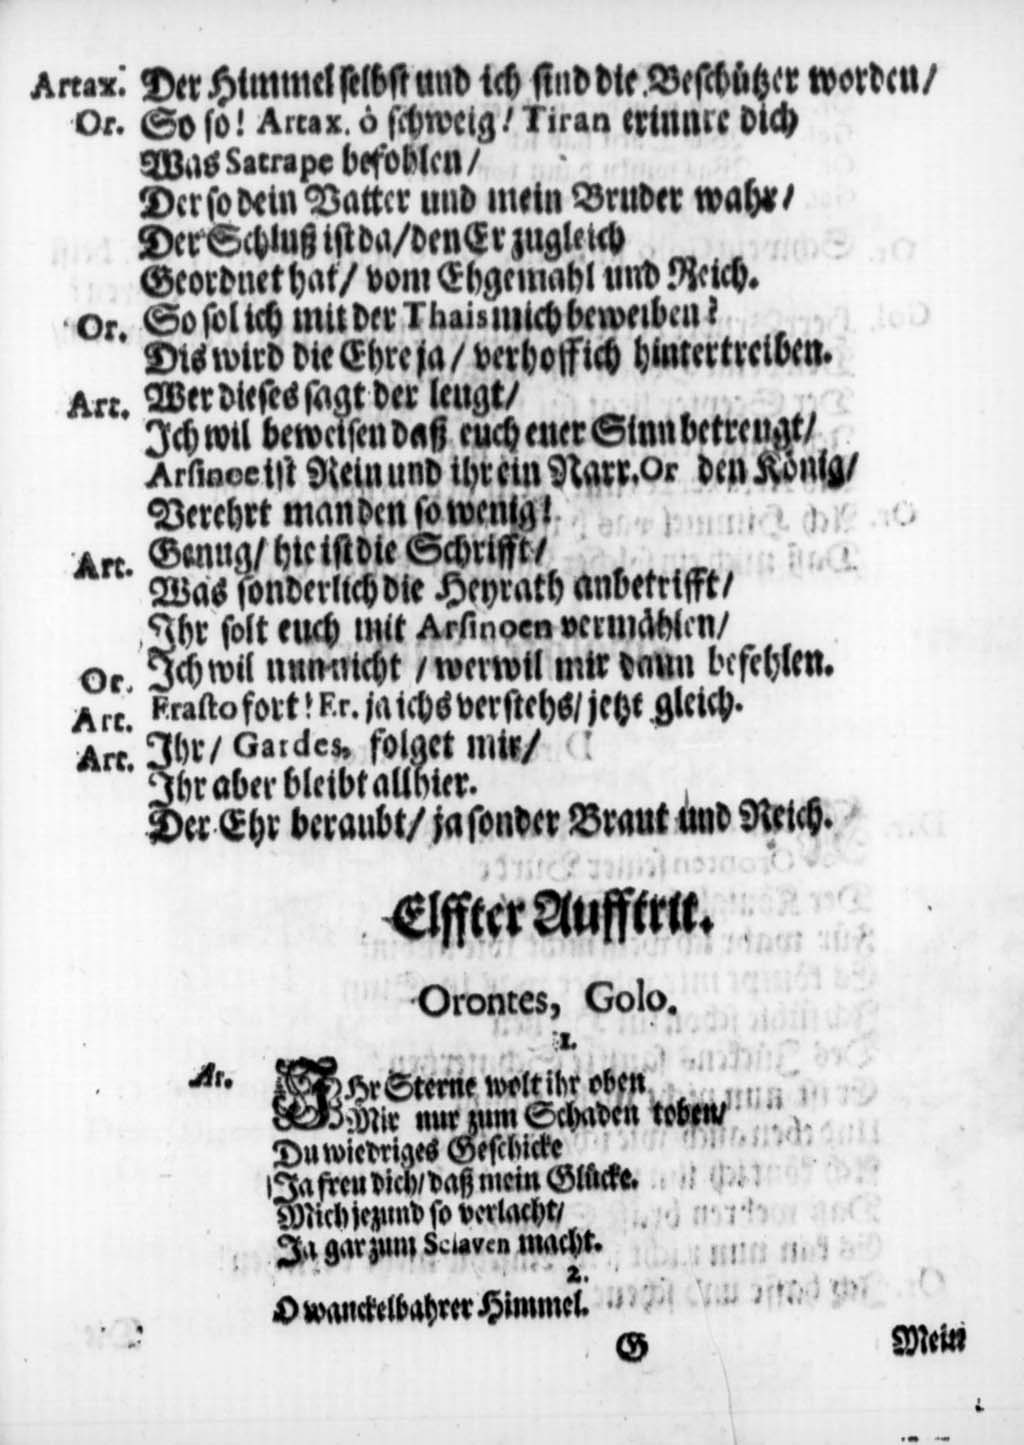 Artax. Der Himmel selbst und ich sind die Beschützer worden/
Or. So so! Artax. ô schweig! Tiran erinnre dich
Was Satrape befohlen/
Der so dein Vatter und mein Bruder wahr/
Der Schluß ist da/ den Er zugleich
Geordnet hat/ vom Ehgemahl und Reich.
Or. So sol ich mit der Thais mich beweiben?
Dis wird die Ehre ja/ verhoff ich hintertreiben.
Art. Wer dieses sagt der leugt/
Ich wil beweisen daß euch euer Sinn betreugt/
Arsinoe ist Rein und ihr ein Narr. Or den König/
Verehrt man den so wenig!
Art. Genug/ hie ist die Schrifft/
Was sonderlich die Heyrath anbetrifft/
Ihr solt euch mit Arsinoen vermählen/
Or. Ich wil nun nicht / wer wil mir dann befehlen.
Art. Erasto fort! Er. ja ichs verstehs/ jetzt gleich.
Art. Ihr/ Gardes, folget mir/
Ihr aber bleibt allhier.
Der Ehr beraubt/ ja sonder Braut und Reich.
Elffter Aufftrit.
Orontes, Golo.
1.
Ar. IHr Sterne wolt ihr oben
Mir nur zum Schaden toben/
Du wiedriges Geschicke
Ja freu dich/ daß mein Glücke.
Mich jezund so verlacht/
Ja gar zum Sclaven macht.
2.
O wanckelbahrer Himmel.
G Mein